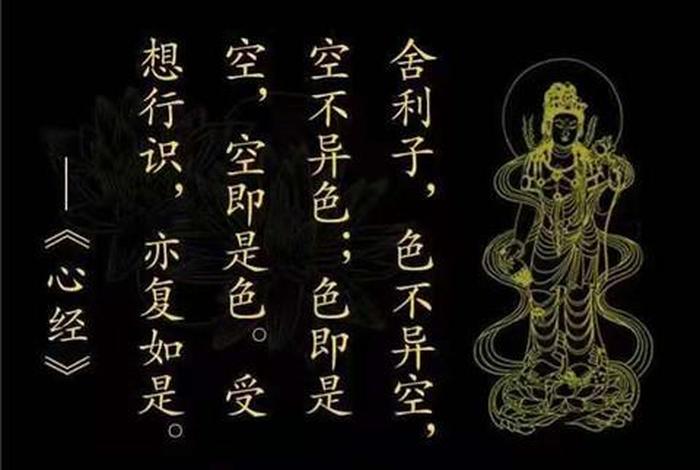 舍利子，色不异空，
空不异色；色即是
空，空即是色。受
想行识，亦复如是。
——《心经》